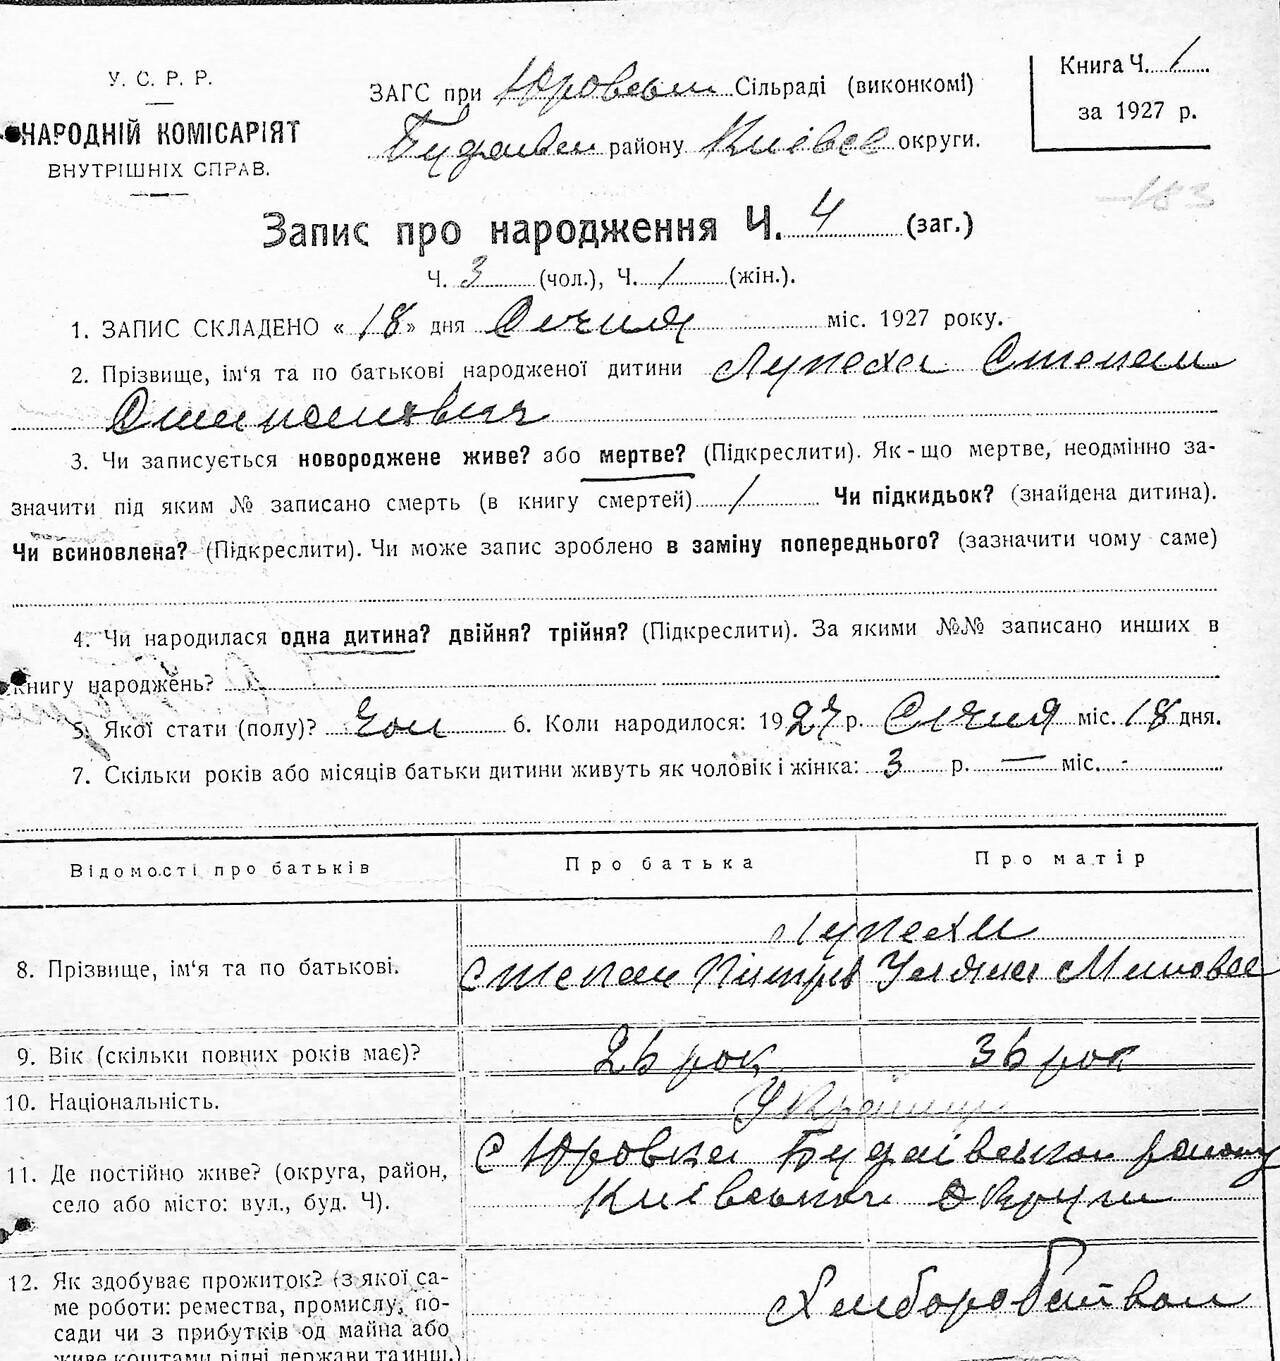 У. С. Р. Р.
НАРОДНІЙ КОМІСАРІЯТ
ВНУТРІШНІХ СПРАВ.
ЗАГС при Юровськ Сільраді (виконкомі)
Будаївськ району Київсе округи.
Книга Ч. 1
за 1927 р.
183
Запис про народження Ч. 4 (заг.)
Ч. 3 (чол.), Ч. 1 (жін.).
1. ЗАПИС СКЛАДЕНО « 18 » дня Січня міс. 1927 року.
2. Прізвище, ім'я та по батькові народженої дитини Лупеха Степан
Степанович
3. Чи записується новороджене живе? або мертве? (Підкреслити). Як-що мертве, неодмінно за-
значити під яким № записано смерть (в книгу смертей) 1 Чи підкидьок? (знайдена дитина).
Чи всиновлена? (Підкреслити). Чи може запис зроблено в заміну попереднього? (зазначити чому саме)
4. Чи народилася одна дитина? двійня? трійня? (Підкреслити). За якими №№ записано инших в
книгу народжень?
5. Якої стати (полу)? Чол 6. Коли народилося: 1927 р. Січня міс. 18 дня.
7. Скільки років або місяців батьки дитини живуть як чоловік і жінка: 3 р. — міс. -
Відомості про батьків Про батька Про матір
Лупехи
8. Прізвище, ім'я та по батькові. Степан Пітрів Уляна Миновае
9. Вік (скільки повних років має)? 26 рок 36 рок
10. Національність. Українці
11. Де постійно живе? (округа, район, с Юровка Будаївського району
село або місто: вул., буд. Ч). Київської округи
12. Як здобуває прожиток? (з якої са-
ме роботи: ремества, промислу, по- Хліборобством
сади чи з прибутків од майна або
живе коштами рідні держави та инш.)